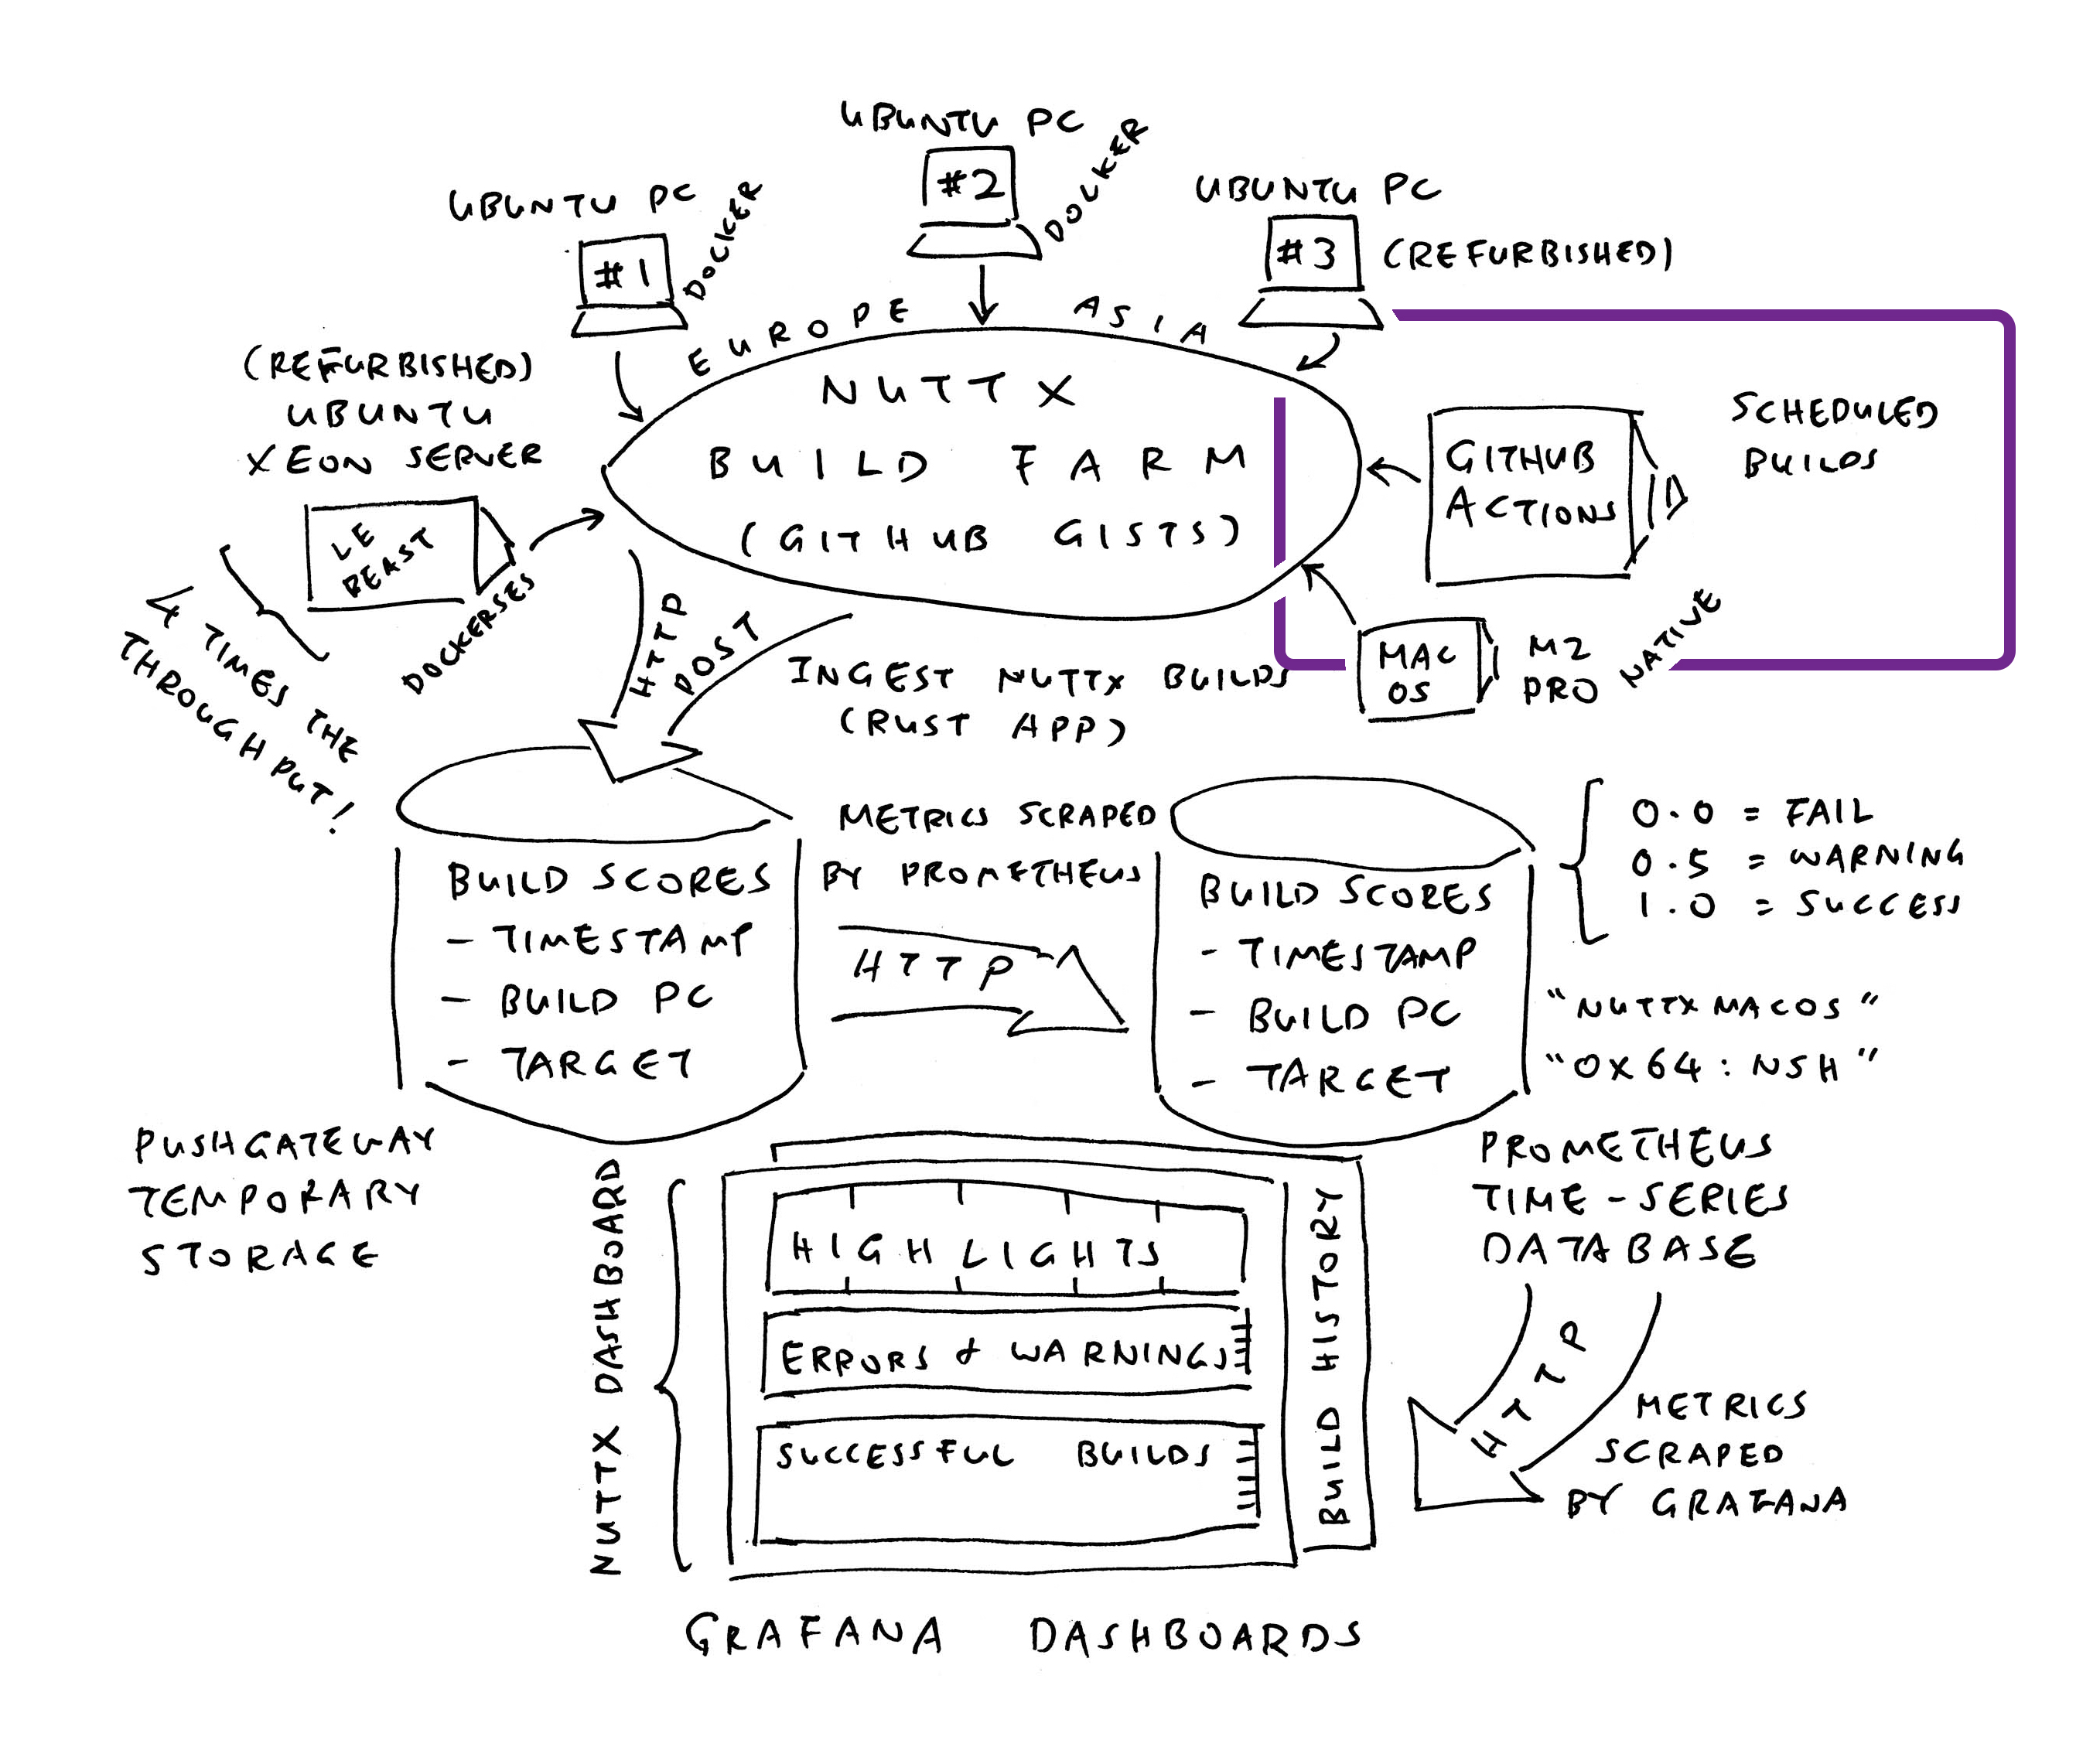 UBUNTU PC
#2
DOCKER
UBUNTU PC
#1
DOCKER
UBUNTU PC
#3
(REFURBISHED)
EUROPE
ASIA
(REFURBISHED)
UBUNTU
XEON SERVER
LE
BEAST
DOCKERSES
4 TIMES THE
THROUGHPUT!
NUTTX
BUILD FARM
(GITHUB GISTS)
GITHUB
ACTIONS
SCHEDULED
BUILDS
MAC
OS
M2
PRO
NATIVE
HTTP
POST
INGEST NUTTX BUILDS
(RUST APP)
BUILD SCORES
- TIMESTAMP
- BUILD PC
- TARGET
METRICS SCRAPED
BY PROMETHEUS
HTTP
BUILD SCORES
- TIMESTAMP
- BUILD PC
- TARGET
0.0 = FAIL
0.5 = WARNING
1.0 = SUCCESS
"NUTTXMACOS"
"OX64:NSH"
PUSHGATEWAY
TEMPORARY
STORAGE
PROMETHEUS
TIME-SERIES
DATABASE
NUTTX DASHBOARD
HIGHLIGHTS
ERRORS & WARNINGS
SUCCESSFUL BUILDS
BUILD HISTORY
HTTP
METRICS
SCRAPED
BY GRAFANA
GRAFANA DASHBOARDS